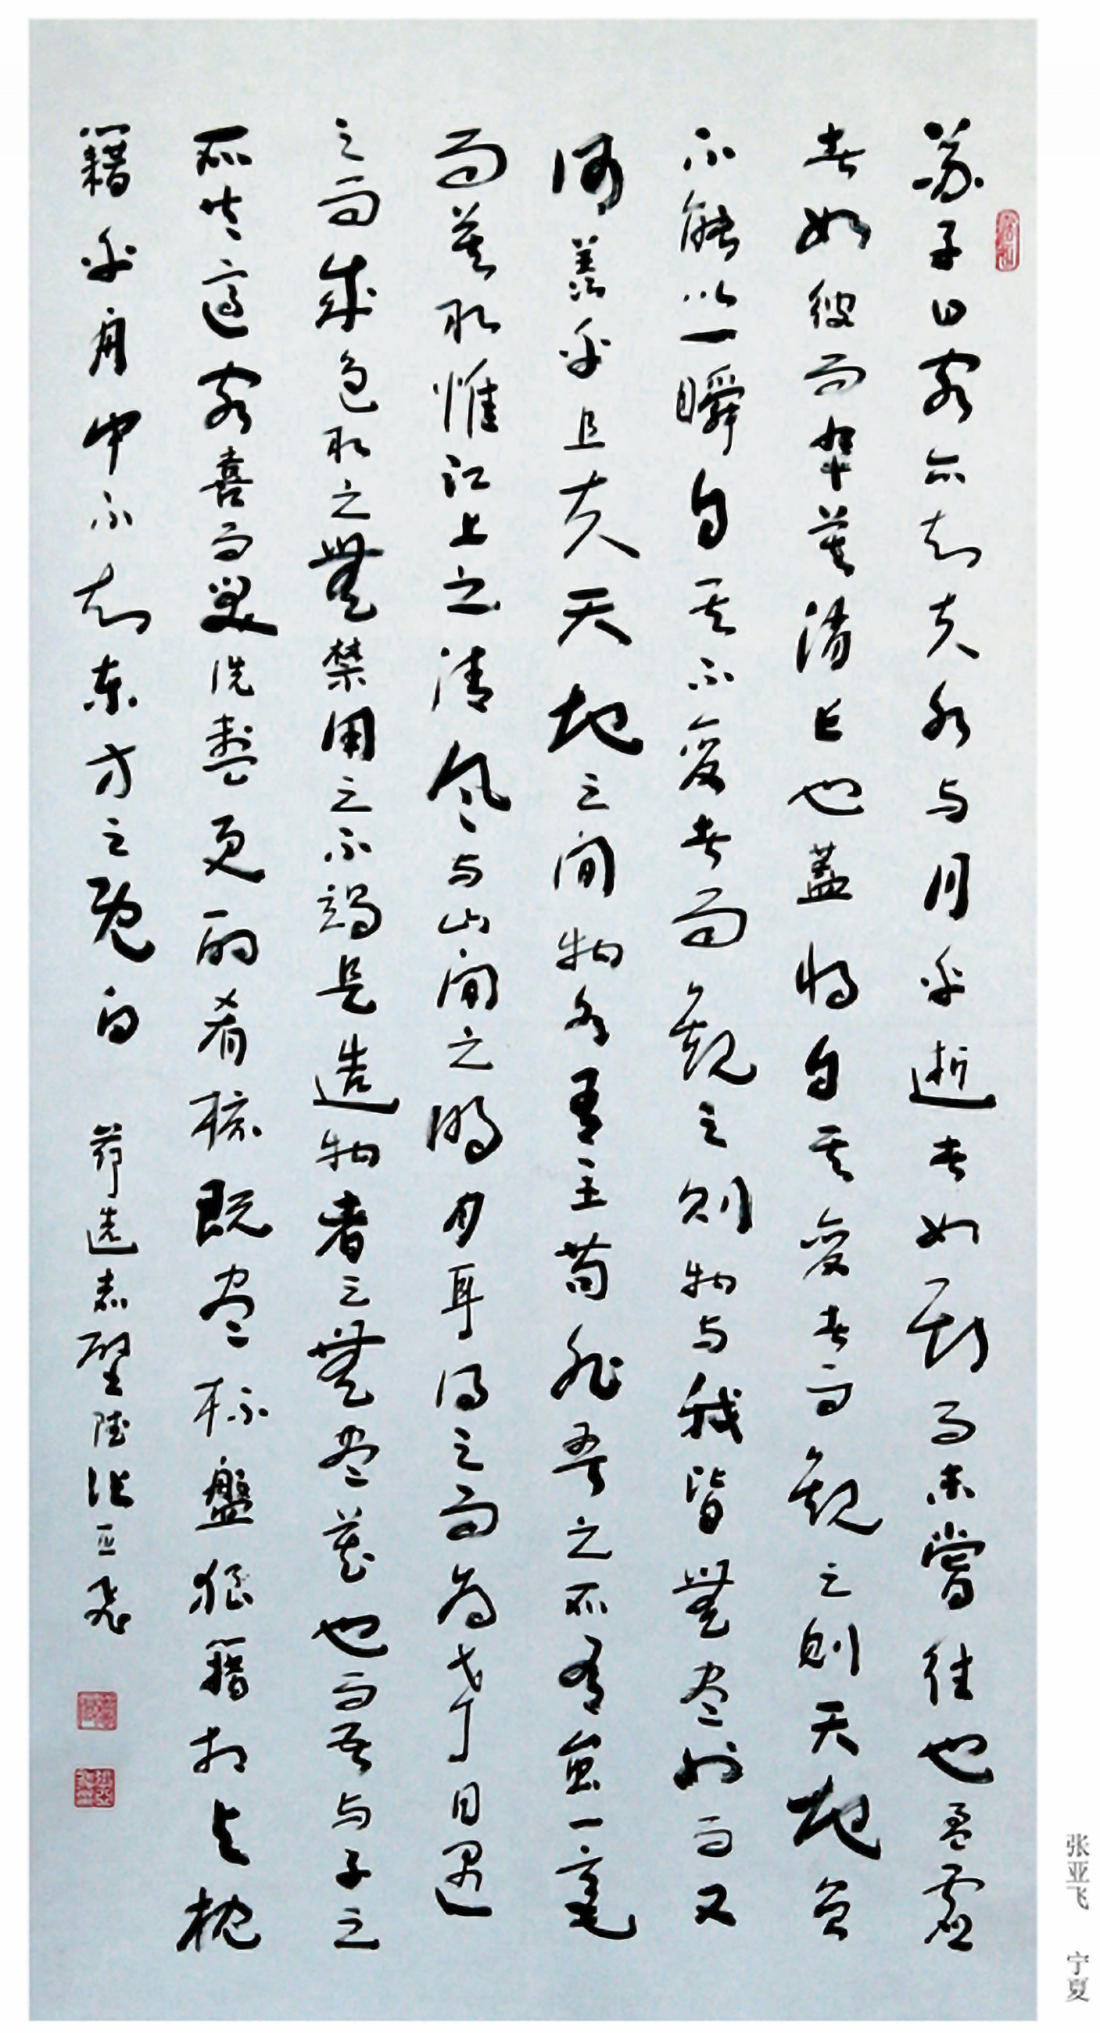 苏子曰客亦知夫水与月乎逝者如斯而未嘗往也盈虚
者如彼而卒莫消长也蓋将自其变者而观之则天地曾
不能以一瞬自其不变者而观之则物与我皆無尽也而又
何羡乎且夫天地之间物各有主苟非吾之所有虽一毫
而莫取惟江上之清风与山间之明月耳得之而为声目遇
之而成色取之無禁用之不竭是造物者之無尽藏也而吾与子之
所共适客喜而笑洗盏更酌肴核既尽杯盘狼籍相与枕
籍乎舟中不知东方之既白 节选赤壁赋张亚飞
张亚飞 宁夏